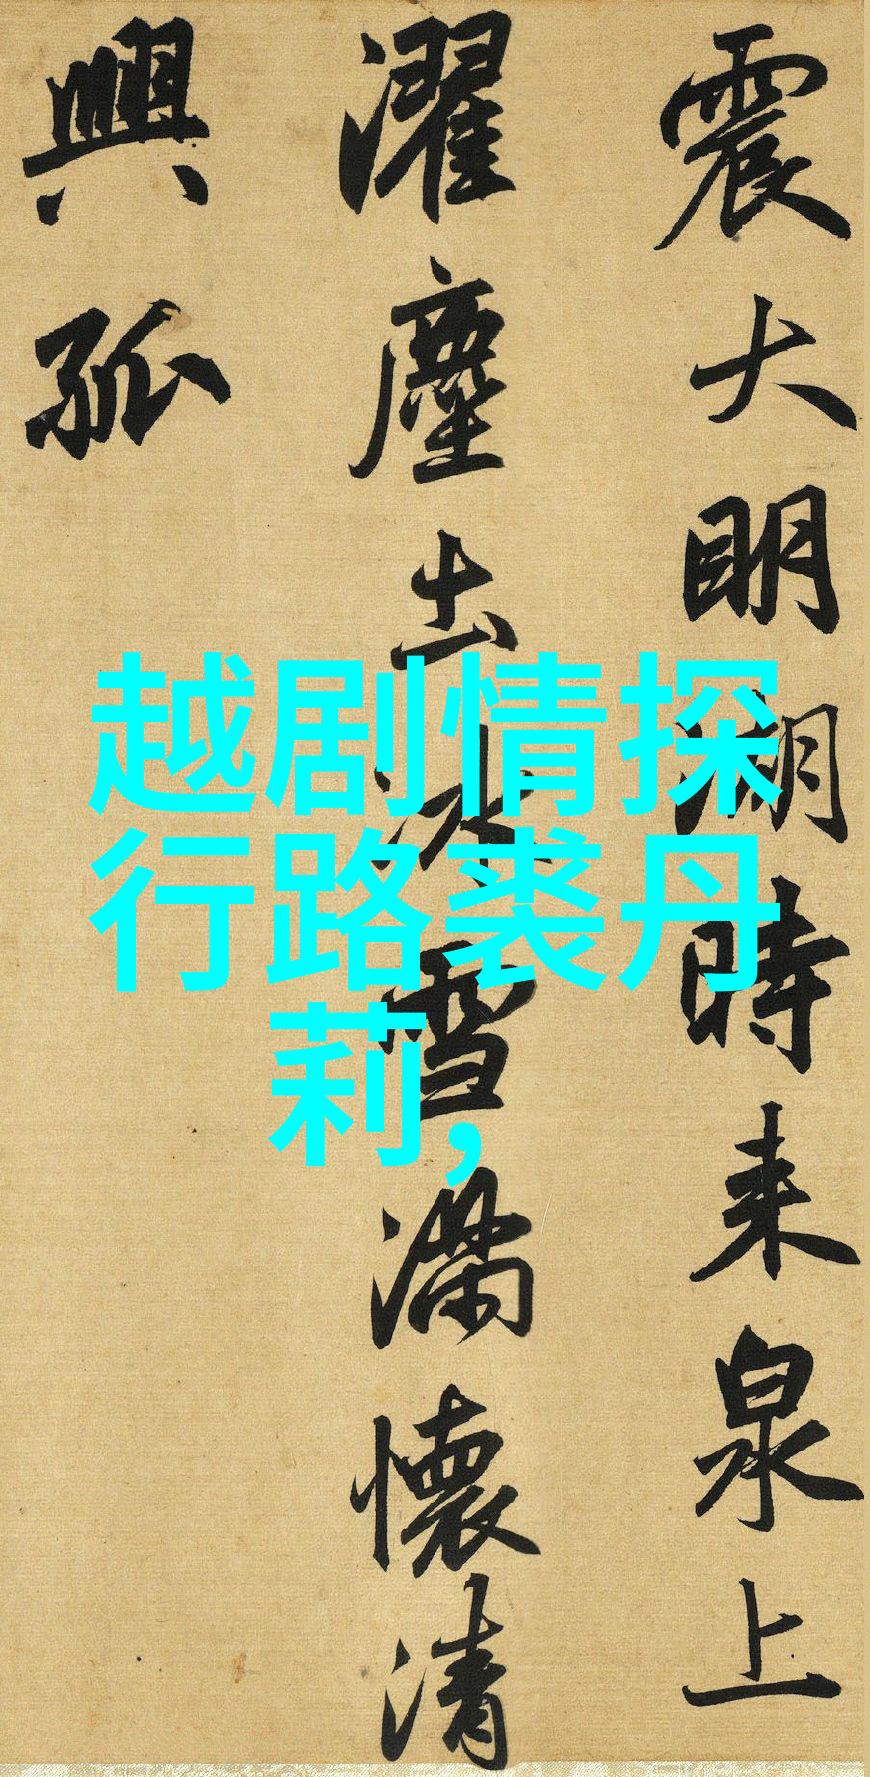 震大明湖時来泉上
濯塵土冰雪満懷清
興孤
越剧情探
行路裘丹
莉,